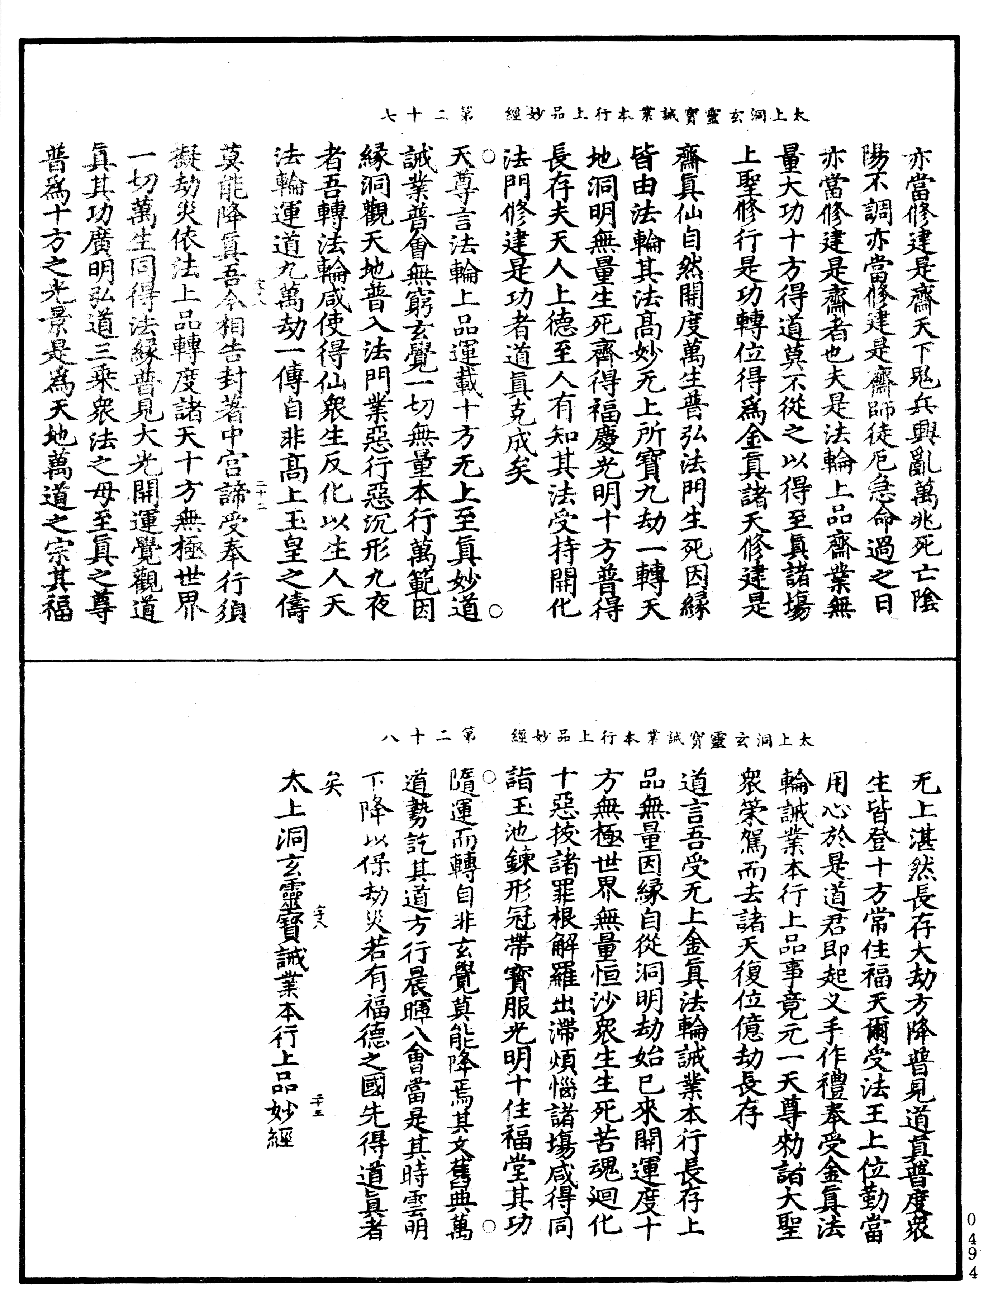 亦當修建是齋天下兵興亂萬兆死亡陰
陽不調亦當修建是齋師徒厄急命過之日
亦當修建是齋者也夫是法輪上品齋業無
量大功十方得道莫不從之以得至真諸場
上聖修行是功轉位得為金真諸天修建是
齋真仙自然開度萬生普弘法門生死因緣
皆由法輪其法高妙无上所寶九劫一轉天
地洞明無量生死齊得福慶光明十方普得
長存夫天人上德至人有知其法受持開化
法門修建是功者道真克成矣
太上洞玄靈寶誡業本行上品妙經　第二十七
天尊言法輪上品運載十方无上至真妙道
誡業普會無窮玄覺一切無量本行萬範因
緣洞觀天地普入法門業惡行惡沉形九夜
者吾轉法輪咸使得仙衆生反化以生人天
法輪運道九萬劫一傳自非高上玉皇之儔
莫能降真吾今相告封著中宮諦受奉行須
擬劫災依法上品轉度諸天十方無極世界
一切萬生同得法緣普見大光開運覺觀道
真其功廣明弘道三乘衆法之母至真之尊
普為十方之光景是為天地萬道之宗其福
无上湛然長存大劫方降普見道真普度衆
生皆登十方常住福天爾受法王上位勤當
用心於是道君即起叉手作禮奉受金真法
輪誡業本行上品事竟元一天尊勑諸大聖
衆策駕而去諸天復位億劫長存
道言吾受无上金真法輪誡業本行長存上
品無量因緣自從洞明劫始已來開運度十
方無極世界無量恒沙衆生生死苦魂迴化
十惡拔諸罪根解羅出滯煩惱諸場咸得同
詣玉池鍊形冠帶寶服光明十住福堂其功
太上洞玄靈寶誡業本行上品妙經　第二十八
隨運而轉自非玄覺莫能降焉其文舊典萬
道勢訖其道方行晨暉八會當是其時雲明
下降以保劫災若有福德之國先得道真者
矣
太上洞玄靈寶誡業本行上品妙經
0494